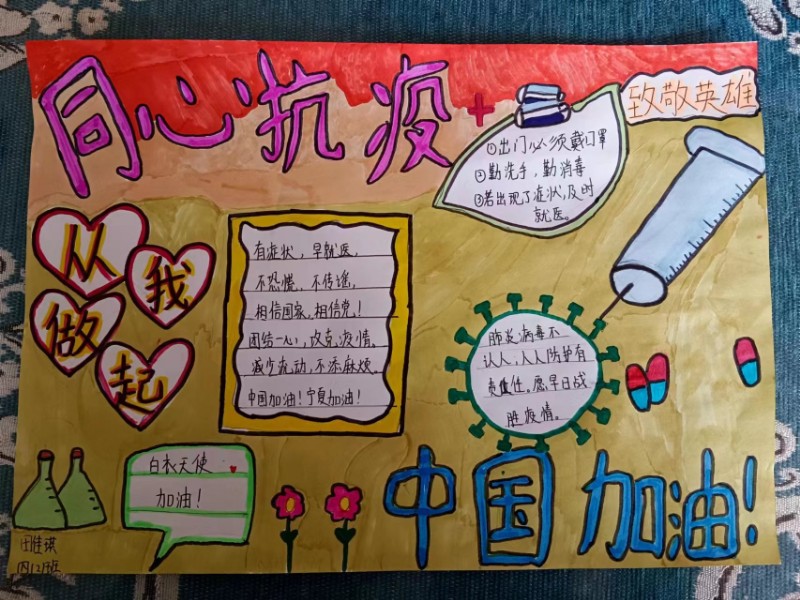 同心抗疫
致敬英雄
①出门必须戴口罩
②勤洗手,勤消毒
③若出现了症状,及时
就医。
从我
做起
有症状,早就医,
不恐慌,不传谣,
相信国家,相信党!
团结一心,攻克疫情。
减少流动,不添麻烦。
中国加油!宁夏加油!
肺炎病毒不
认人,人人防护有
责任。愿早日战
胜疫情。
白衣天使
加油!
中国加油!